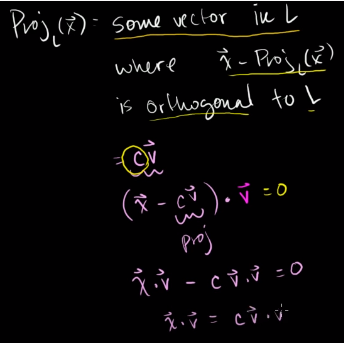 Proj_L(x⃗) = some vector in L
where x⃗ - Proj_L(x⃗)
is orthogonal to L
= cv⃗
(x⃗ - cv⃗) · v⃗ = 0
proj
x⃗·v⃗ - c v⃗·v⃗ = 0
x⃗·v⃗ = c v⃗·v⃗